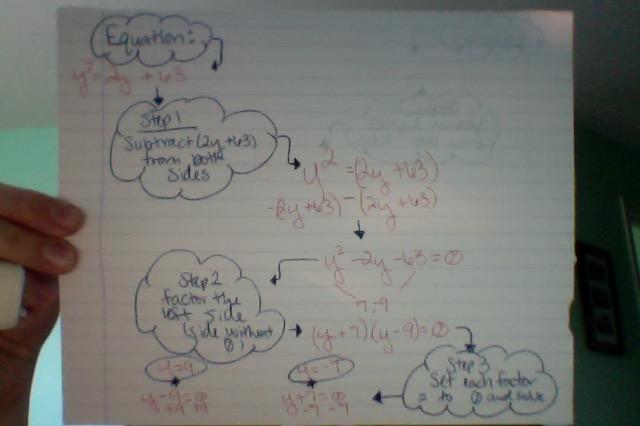 Equation:
y² = 2y + 63
Step 1
Subtract (2y +63)
from both
sides
y² = (2y + 63)
-(2y +63) - (2y +63)
y² - 2y - 63 = 0
7, -9
Step 2
factor the
left side
(side without
0)
(y + 7)(y - 9) = 0
Step 3
Set each factor
= to 0 and solve
y = 9
y = -7
y - 9 = 0
+9 +9
y + 7 = 0
-7 -7